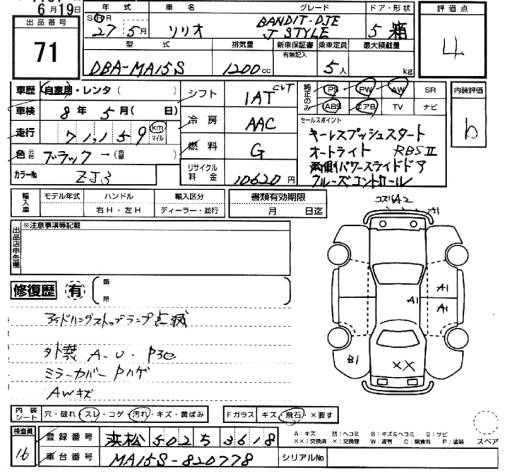 6月19日
出品番号
71
年式 車名 グレード ドア・形状
27年5月 ソリオ BANDIT-DJE
J STYLE 5 箱
評価点
4
型式 排気量 新車保証書 乗車定員 最大積載量
有無記入
DBA-MA15S 1200cc 5人 kg
車歴 自家用・レンタ( )
車検 8年5月(日)
走行 71,159 km マイル
色 元色 ブラック→(色替)
カラーNo ZJ3
シフト 1AT CVT
冷房 AAC
燃料 G
リサイクル料金 10620円
純正のみ PS PW AW SR
ABS エアB TV ナビ
内装評価
b
セールスポイント
キーレスプッシュスタート
オートライト RBSⅡ
両側パワースライドドア
クルーズコントロール
輸入車 モデル年式 ハンドル 輸入区分 書類有効期限
右H・左H ディーラー・並行 月 日迄
出品店申告欄 ※注意事項等記載
修復歴 有 箇所
アイドリングストップランプ点滅
外装 A-U・Pヨゴ
ミラーカバー Pハゲ
AWキズ
コスリA2
A1
A1
A1
A1
B1
XX
内装シート 穴・破れ・スレ・コゲ・汚れ・キズ・黄ばみ Fガラス キズ・飛石・×要す
検査員
16
登録番号 浜松 502 5 3618
車台番号 MA15S-820778 シリアルNo
スペア